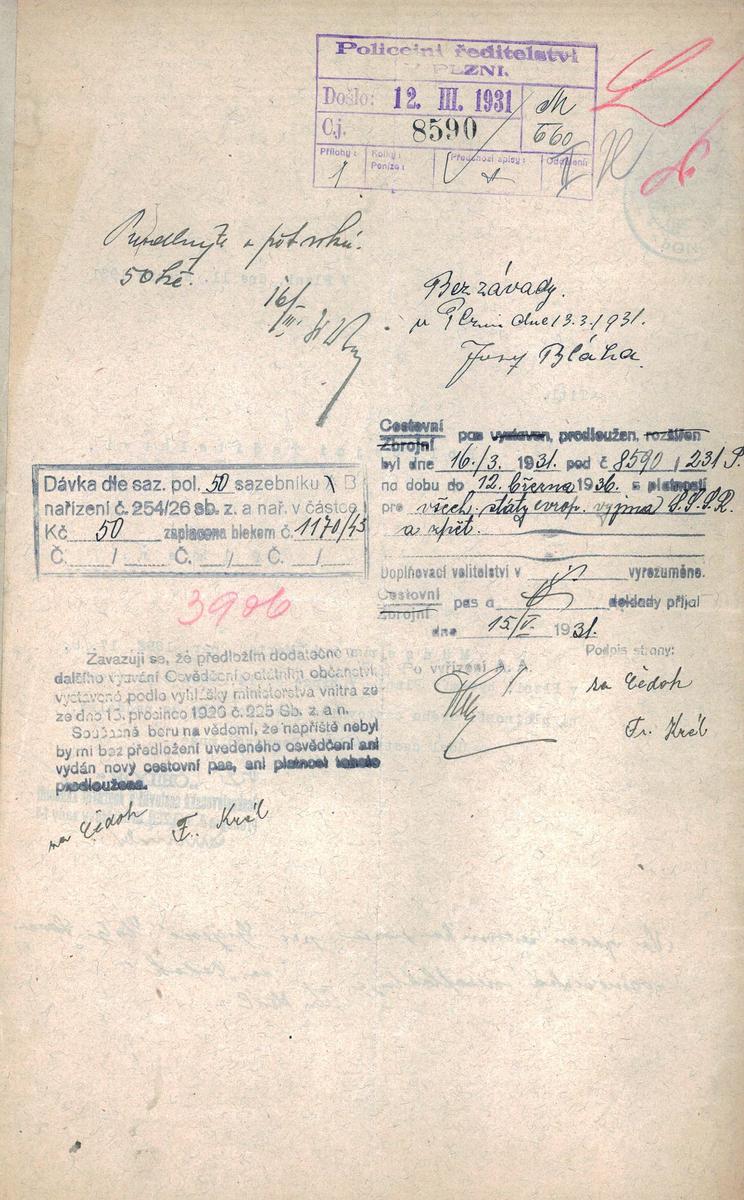 Policejní ředitelství
V PLZNI.
Došlo: 12. III. 1931
Čj. 8590
M
660
Přílohy:
Kolky:
Peníze:
Předchozí spisy:
Oddělení:
1
1
II
PON
Prodlužte o pět roků.
50 Kč.
16/III.
Bez závady.
v Plzni dne 13.3.1931.
Josef Bláha.
Cestovní
Zbrojní pas vystaven, prodloužen, rozšířen
byl dne 16./3. 1931. pod č 8590 / 231 P.
na dobu do 12. března 1936. s platností
pro všech. státy evrop. vyjma S.S.S.R.
a zpět.
Doplňovací velitelství v vyrozuměno.
Cestovní
Zbrojní pas a doklady přijal
dne 15/V. 1931.
Po vyřízení A. A.
Podpis strany:
za Čedok
Fr. Král
Dávka dle saz. pol. 50 sazebníku A B
nařízení č. 254/26 sb. z. a nař. v částce
Kč 50 zaplacena blokem č. 1170/43
Č. / Č. / Č. /
3906
Zavazuji se, že předložím dodatečně
dalšího vyzvání Osvědčení o státním občanství,
vystavené podle vyhlášky ministerstva vnitra ze
ze dne 13. prosince 1920 č. 225 Sb. z. a n.
Současně beru na vědomí, že napříště nebyl
by mi bez předložení uvedeného osvědčení ani
vydán nový cestovní pas, ani platnost tohoto
prodloužena.
za Čedok Fr. Král